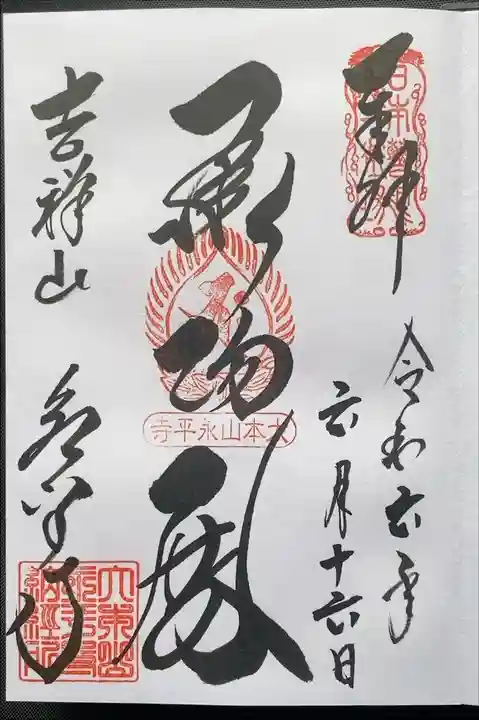 奉拝
令和六年
六月十六日
承陽殿
大本山永平寺
吉祥山
永平寺